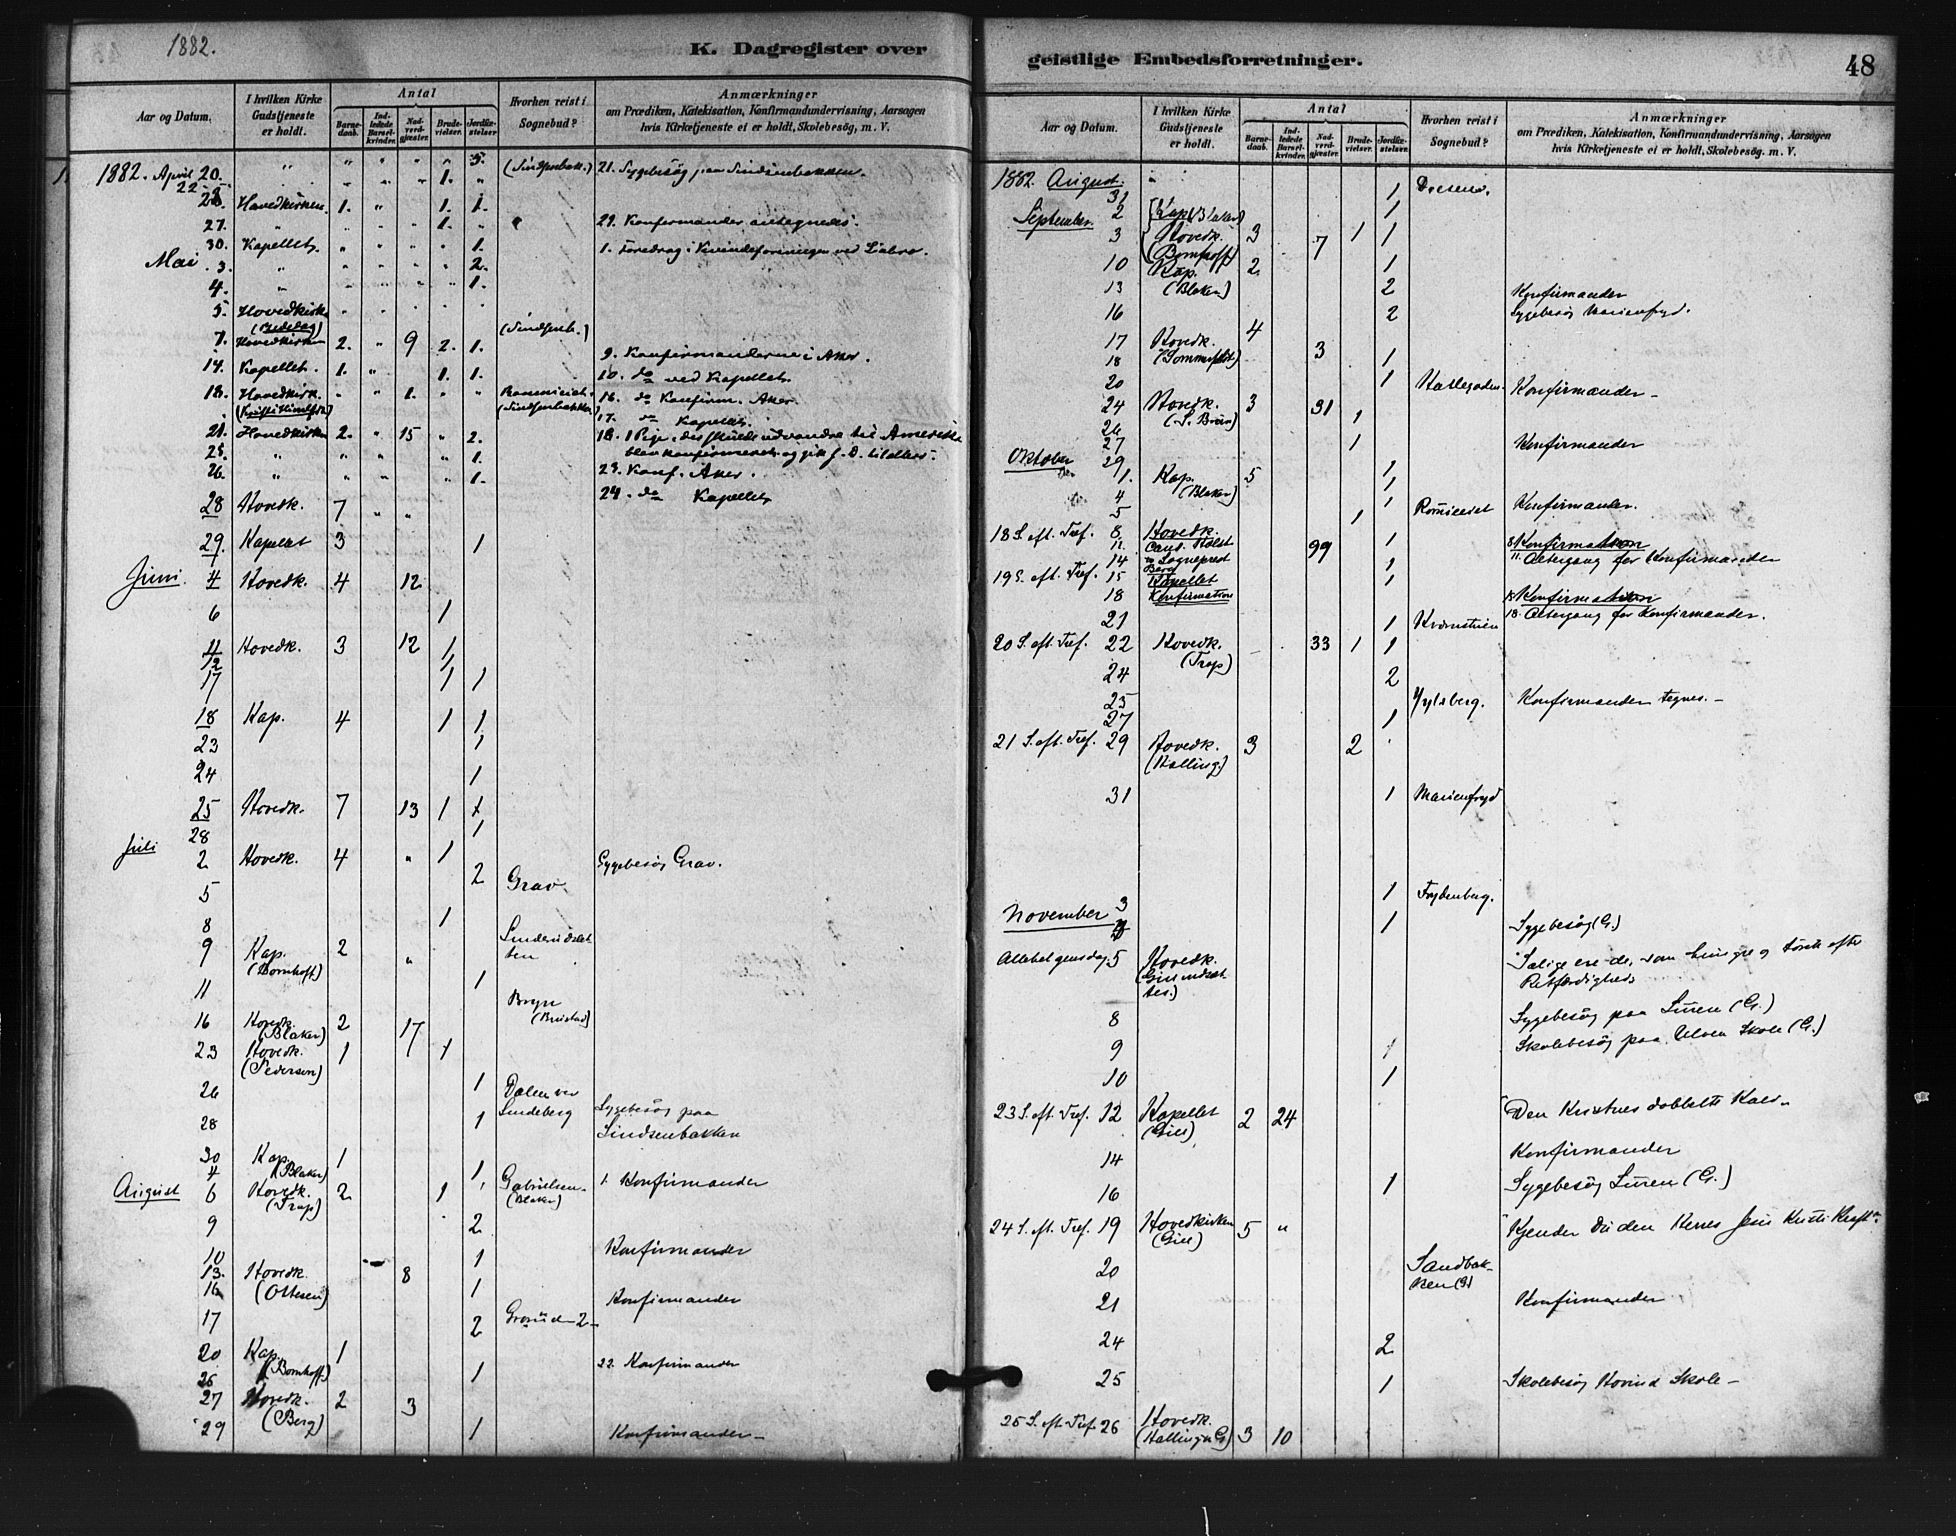 1882.
K. Dagregister over
Aar og Datum.
I hvilken Kirke
Gudstjeneste
er holdt.
Antal
Barne-
daab.
Ind-
ledede
Barsel-
kvinder.
Nad-
verd-
gjæster.
Brude-
vielser.
Jordfæ-
stelser
Hvorhen reist i
Sognebud?
Anmærkninger
om Prædiken, Katekisation, Konfirmandundervisning, Aarsagen
hvis Kirketjeneste ei er holdt, Skolebesøg, m. V.
1882. April 20. " " " " " 5. 21. Sygebesøg paa Sindsenbakken.
22 " " " " 1. "
Hovedkirken. 1. " 1. 1.
27. " " " " 1. " 29. Konfirmander antegnedes.
30. Kapellet. " " " " 1. 1. Foredrag i Kvindeforeningen ved Liabro.
Mai 3. " " " " " 2.
4. " " " " " 1.
5. Hovedkirk
(Bededag)
7. Hovedkirken 2. " 9 2. 1. 9. Konfirmanderne i Aker.
14. Kapellet. 1. " 1. 1. 10. do ved Kapellet.
18. Hovedkirk. " " 1. " " 16. do Konfirm. Aker.
17. do Kapellet.
21. Hovedkirken 2. " 15 " 2. 18. 1 Pige, der skulde udvandre til Amerika
25. " " " " " 1. blev konfirmeret og gik f. D. til alters.
26. " " " " 1. 23. Konf. Aker.
24. do Kapellet,
28 Hovedk. 7 " "
29. Kapellet 3 1
Juni. 4 Hovedk. 4 12
6 1
11 Hovedk. 3 12 1
12 1
17 1 1
18 Kap. 4 1 1
23 1
24 1
25 Hovedk. 7 13 1 1
28 1
Juli 2 Hovedk. 4 " 1 2 Sygebesøg Grav.
5 Grav
8 1
9 Kap. 2 "
(Bornhoft)
11 1 Bryn
16 Hovedk. 2 17
(Blaker)
23 Hovedk. 1 1
(Pedersen)
26 1 Dalen ved
Lindeberg
28 1 Sygebesøg paa
Sindsenbakken
30 Kap. 1
(Blaker)
4 1
August 6 Hovedk. 2 1 (Blaker) 1. Konfirmander
(Trap)
9 2
10 1 Konfirmander
13. Hovedk. 8
(Ottesen)
16 1 Konfirmander
17 2 Grorud 2
20 Kap. 1 22. Konfirmander
(Bornhoft)
26 1
27 Hovedk. 2 3
(Berg)
29 1 Konfirmander
geistlige Embedsforretninger.
48
Aar og Datum.
I hvilken Kirke
Gudstjeneste
er holdt.
Antal
Barne-
daab.
Ind-
ledede
Barsel-
kvinder.
Nad-
verd-
gjæster.
Brude-
vielser.
Jordfæ-
stelser.
Hvorhen reist i
Sognebud?
Anmærkninger
om Prædiken, Katekisation, Konfirmandundervisning, Aarsagen
hvis Kirketjeneste ei er holdt, Skolebesøg. m. V.
1882. August.
31 1
September 2 Kap. (Blaker) 1
3 Hovedk. 3 7 1 1
(Bornhoft)
10 Kap. 2 1
(Blaker)
13 2 Konfirmander
16 2 Sygebesøg Marienfryd.
17 Hovedk. 4 3
(Sommerfeldt)
18 1
20 1 Konfirmander
24 Hovedk. 3 31
26 1
27 1 Konfirmander
Oktober 29 1
1. Kap. 5 1
(Blaker)
4 1 Konfirmander.
5 1
18 S. eft. Tref. 8 Hovedk. 1 8 Konfirmation
11. Cand. Holst 99 11 Altergang for Konfirmander
14 Sogneprest Berg 1
19 S. eft. Tref. 15 Kapellet 1 15 Konfirmation
18 Konfirmation 18. Altergang for Konfirmander.
21 1
20 S. eft. Tref. 22 Hovedk. 33 1 1
(Trap)
24 2
25 Konfirmander tegnes.
27 1
21 S. eft. Tref. 29 Hovedk. 3 2
(Halling.)
31 1 Marienfryd
November 3 1 Frydenberg.
1 Sygebesøg (G.)
Allehelgensdag 5 Hovedk. "Salige ere de, som hungre og tørste efter
Retfærdighed"
8 Sygebesøg paa Luren (G.)
9 1 Skolebesøg paa Ulven Skole (G.)
10 1
23 S. eft. Tref. 12 Kapellet 2 24 "Den Kristnes dobbelte Kald"
14 Konfirmander
16 1 Sygebesøg Luren (G.)
24 S. eft. Tref. 19 Hovedkirken 5 " "Kjender Du den Herres Jesu Kristi Kraft"
20 Sandbak-
ken (G)
21 Konfirmander
24 2
25 1 Skolebesøg Hovind Skole
25 S. eft. Tref. 26 Hovedk. 3 10
(Halling G)